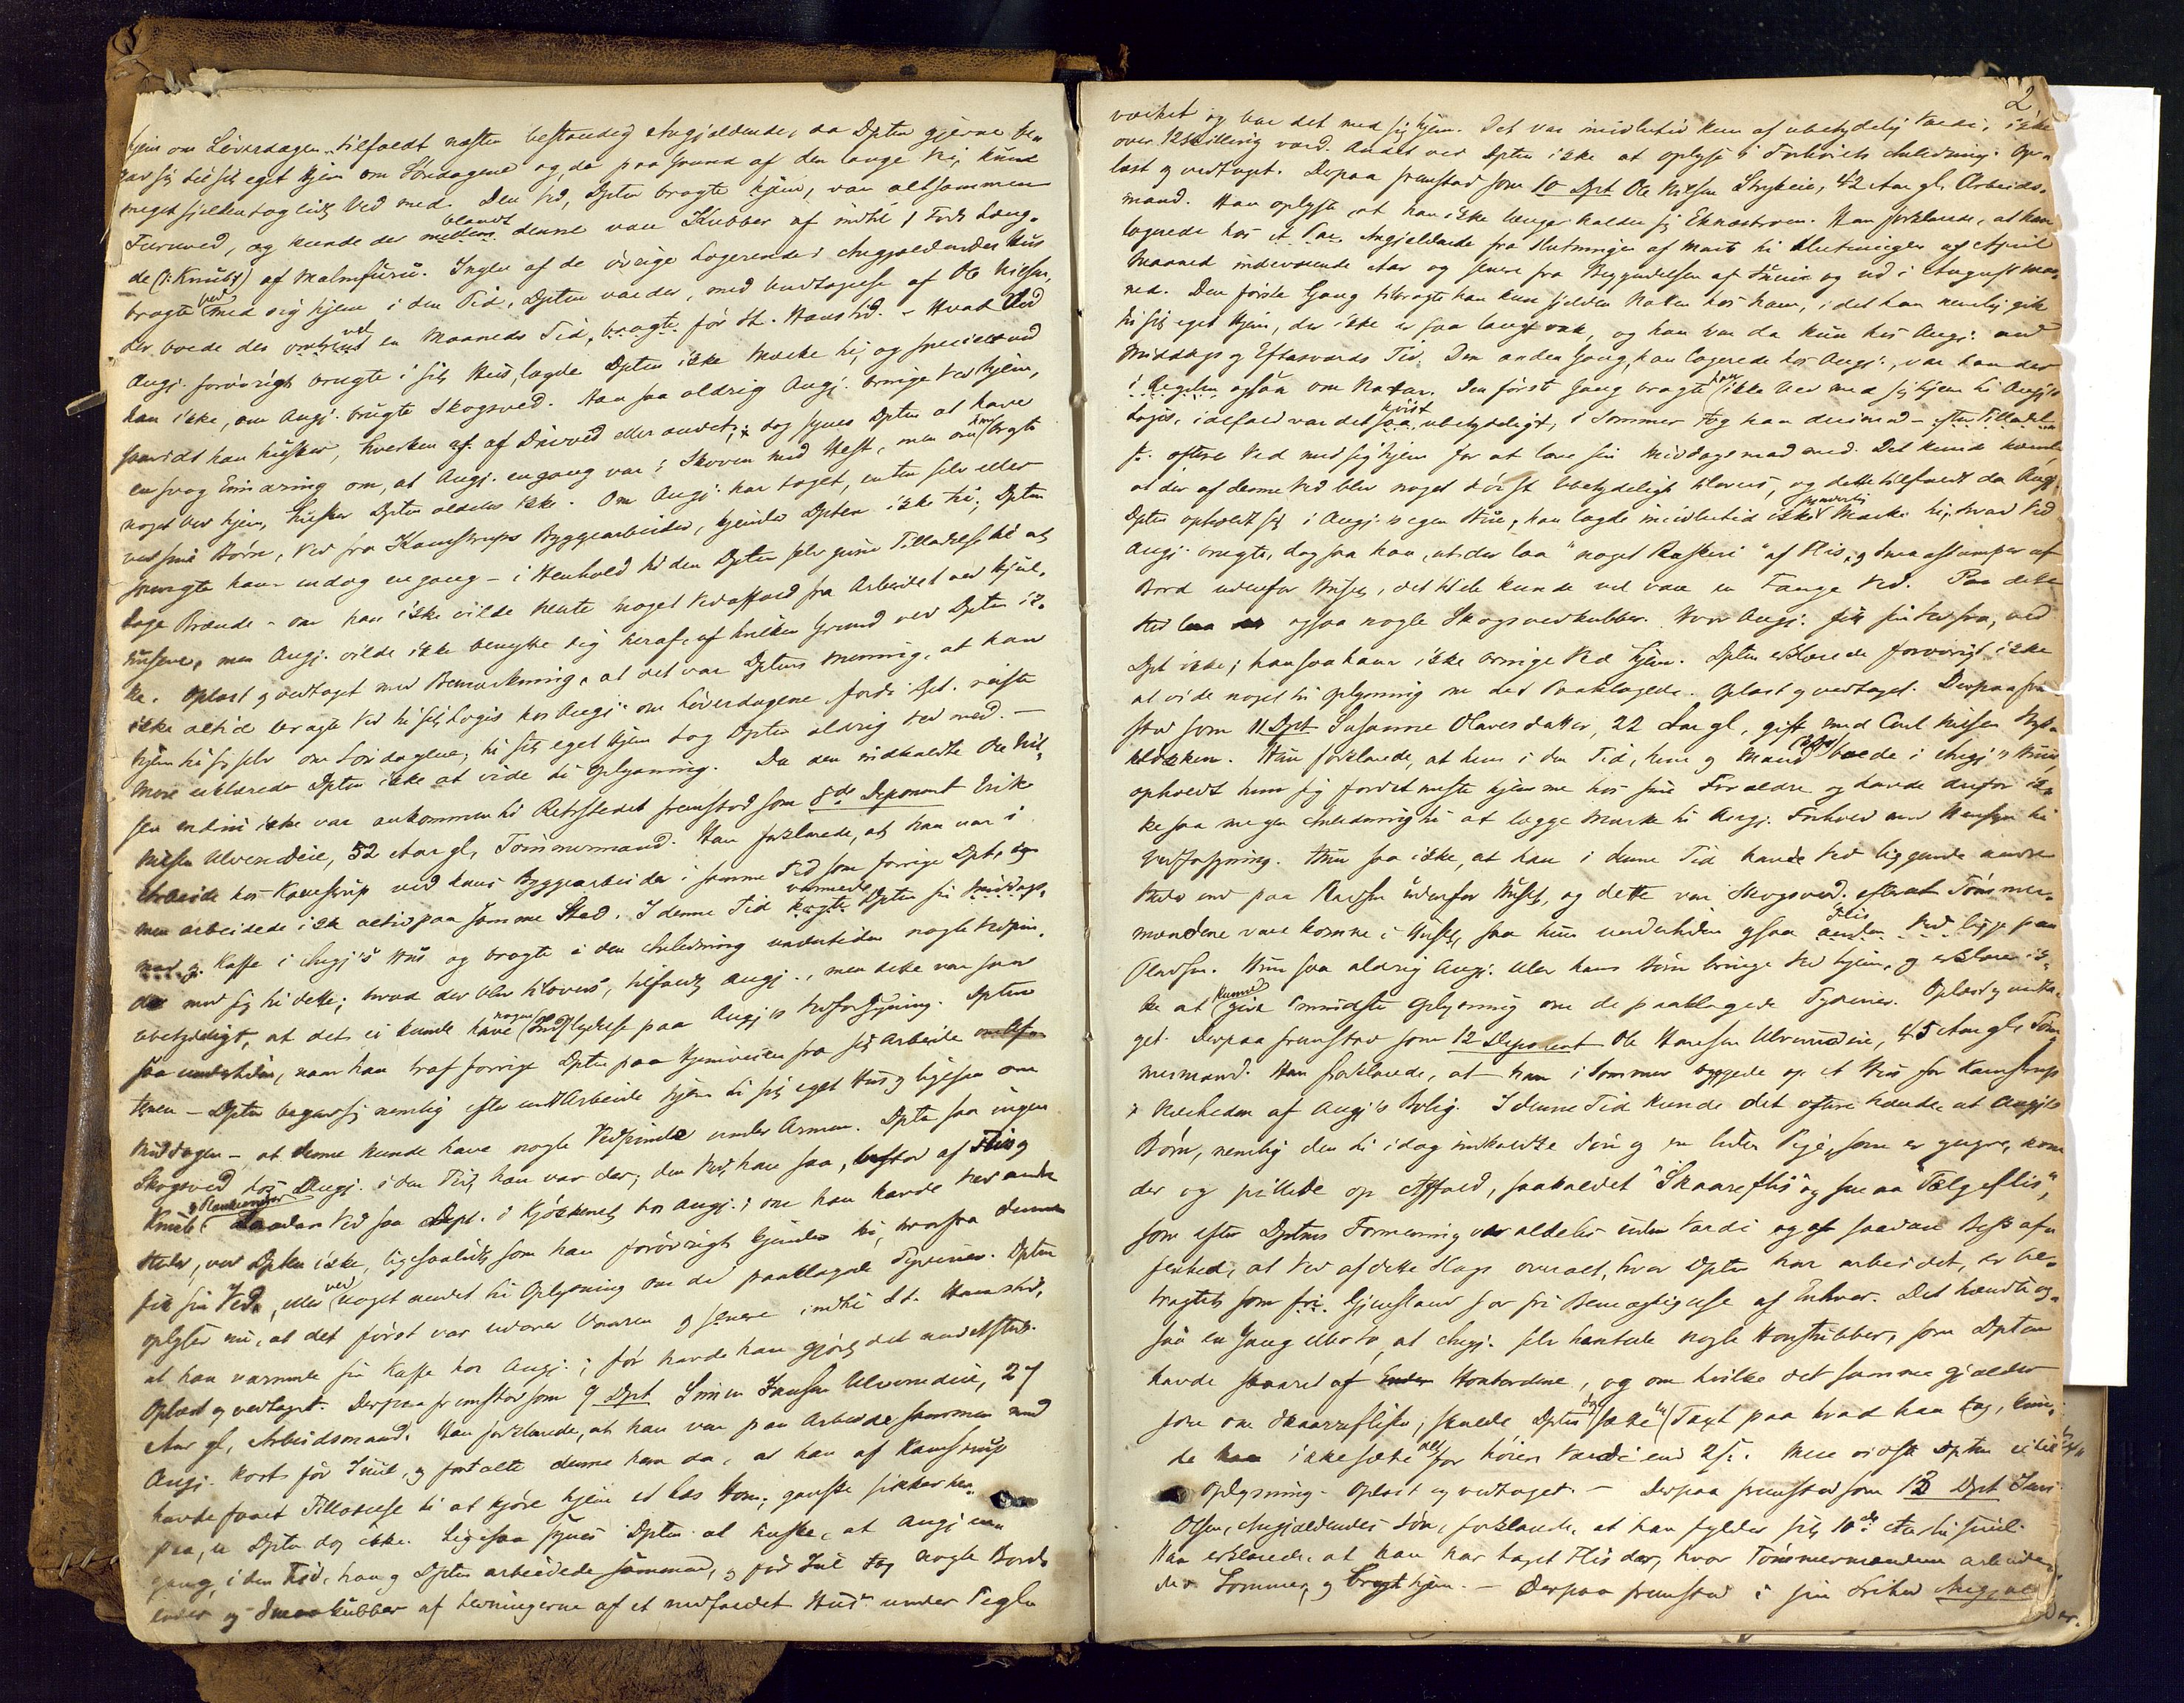 hjem om Løverdagen tilfaldt næsten bestandig Angjældende, da Dptn gjerne be-
gav sig til sit eget Hjem om Søndagene og da paa Grund af den lange Vei, kunde
meget sjelden tog lidt Ved med. Den Ved, Dptn bragte hjem, var altsammen
Furuved, og kunde der blandt denne være Kubber af indtil 1 Fods Læng-
de (: Knubb) af Malmfuru. Ingen af de øvrige Logerende i Angjældendes Hus
bragte Ved med sig hjem i den Tid, Dptn var der, med Undtagelse af Ole Nielsen,
der boede der vel en Maaneds Tid, før St. Hanstid. - Hvad Ved
Angj. forøvrigt brugte i sit Hus, lagde Dptn ikke Mærke til, og specielt ved
han ikke, om Angj. brugte Skogsved. Han saa aldrig Angj. bringe Ved hjem,
saavidt han husker, hverken af Drivved eller andet; dog synes Dptn at have
en svag Erindring om, at Angj. engang var i Skoven med Hest, men om han bragte
noget Ved hjem, husker Dptn aldeles ikke. Om Angj. har taget, enten selv eller
ved sine Børn, Ved fra Kamstrups Byggearbeider, kjender Dptn ikke til; Dptn
spurgte ham endog engang - i Henhold til den Dptn selv givne Tilladelse til at
tage Brænde - om han ikke vilde hente noget Vedaffald fra Arbeidet ved Hjul-
husene, men Angj. vilde ikke benytte sig heraf, af hvilken Grund ved Dptn ik-
ke. Oplæst og vedtaget med Bemærkning, at det var Dptns Mening, at han
ikke altid bragte Ved til sit Logis hos Angj. om Løverdagene, fordi Dpt. reiste
hjem til sig selv om Søndagene; til sit eget Hjem tog Dptn aldrig Ved med. -
Mere erklærede Dptn ikke at vide til Oplysning. Da den indkaldte Ole Niel-
sen endnu ikke var ankommen til Retsstedet fremstod som 8de Deponent Erik
Nielsen Ulvenødeie, 52 Aar gl, Tømmermand. Han forklarede, at han var i
Arbeide hos Kamstrup ved hans Byggearbeider i samme Tid som forrige Dpt,
men arbeidede ikke altid paa samme Sted. I denne Tid varmede Dptn sin Middags-
Kaffe i Angj's Hus og bragte i den Anledning undertiden nogle Vedpin-
der med sig til dette; hvad der blev tilovers, tilfaldt Angj., men dette var saa
ubetydeligt, at det ei kunde have nogen Indflydelse paa Angj.s Vedforsyning. Dptn
saa undertiden, naar han traf forrige Dptn paa Hjemveien fra sit Arbeide
- Dptn begav sig nemlig efter endt Arbeide hjem til sit eget Hus, ligesaa om
Middagen - at denne kunde have nogle Vedpinde under Armen. Dptn saa ingen
Skogsved hos Angj. i den Tid, han var der; den Ved, han saa, bestod af Flis og
Knub. Ved saa Dept. i Kjøkkenet hos Angj.; om han havde Ved andre
Steder, ved Dptn ikke, ligesaalidt som han forøvrigt kjender til, hvorfra denne
fik sin Ved, eller ved noget andet til Oplysning om de paaklagede Tyverier. Dptn
oplyste nu, at det først var udover Vaaren og senere indtil St. Hanstid,
at han varmede sin Kaffe hos Angj.; før havde han gjort det andetsteds.
Oplæst og vedtaget. Derpaa fremstod som 9 Dpt Simen Jensen Ulvenødeie, 27
Aar gl, Arbeidsmand. Han forklarede, at han var paa Arbeide sammen med
Angj. kort før Juul, og fortalte denne ham da, at han af Kamstrup
havde faaet Tilladelse til at kjøre hjem et Læs Hon; ganske sikker her-
paa, er Dptn dog ikke. Ligesaa synes Dptn at huske, at Angj. en
gang, i den Tid, han og Dptn arbeidede sammen, og før Jul tog nogle Bord-
ender og Smaakubber af Levningerne af et nedfaldet Hus under Tegl-
2
værket og bar det med sig hjem. Det var imidlertid kun af ubetydelig Værdi, ikke
over 12 Skilling værd. Andet ved Dptn ikke at oplyse i Forhørets Anledning. Op-
læst og vedtaget. Derpaa fremstod som 10 Dpt Ole Nielsen Strykeie, 42 Aar gl, Arbeids-
mand. Han oplyste, at han ikke længer kalder sig Eknæstrøen. Han forklarede, at han
logerede hos Angjældende fra Slutningen af Marts til Slutningen af April
Maaned indeværende Aar og senere fra Begyndelsen af Juni og ud i August Maa-
ned. Den første Gang tilbragte han kun sjelden Natten hos ham, idet han nemlig gik
til sit eget Hjem, der ikke er saa langt væk, og han var da kun hos Angj. ved
Middags og Eftasværds Tid. Den anden Gang, han logerede hos Angj., var han der
i Regelen ogsaa om Natten. Den første Gang bragte han ikke Ved med sig hjem til Angj's
Logis, ialfald var det høist ubetydeligt, i Sommer tog han derimod - efter Tilladel-
se - oftere Ved med sig hjem for at lave sin Middagsmad med. Det kunde hænde,
at der af denne Ved blev noget høist ubetydeligt tilovers, og dette tilfaldt da Angj.
Dptn opholdt sig i Angj.s egen Stue, han lagde imidlertid ikke synderlig Mærke til, hvad Ved
Angj. brugte, dog saa han, at der laa "noget Raskeri" af Flis og Smaastumper af
Bord udenfor Huset, det Hele kunde vel være en Fange Ved. Paa dette
Sted laa ogsaa nogle Skogsvedkubber. Hvor Angj. fik sin Ved fra, ved
Dpt ikke; han saa ham ikke bringe Ved hjem. Dptn erklærede forøvrigt ikke
at vide noget til Oplysning om det Paaklagede. Oplæst og vedtaget. Derpaa frem-
stod som 11 Dpt Susanne Olavesdatter, 22 Aar gl, gift med Carl Nielsen
. Hun forklarede, at hun i den Tid, hun og Mand boede i Angj's Hus,
opholdt hun sig fordet meste hjemme hos sine Forældre og havde derfor ik-
ke saa megen Anledning til at lægge Mærke til Angj. Forhold med Hensyn til
Vedforsyning. Hun saa ikke, at han i denne Tid havde Ved liggende andre
Steder end paa Pladsen udenfor Huset, og dette var Skogsved; efterat Tømmer-
mændene vare komne i Huset, saa hun undertiden ogsaa Flis ligge paa
Pladsen. Hun saa aldrig Angj. eller hans Børn bringe Ved hjem, og erklærer ik-
ke at kunne give mindste Oplysning om de paaklagede Tyverier. Oplæst og vedta-
get. Derpaa fremstod som 12 Deponent Ole Hansen Ulvenødeie, 45 Aar gl, Tøm-
mermand. Han forklarede, at han i Sommer byggede op et Hus for Kamstrup
i Nærheden af Angj's Bolig. I denne Tid kunde det oftere hænde, at Angj's
Børn, nemlig den til idag indkaldte Søn og en liden Pige, som er yngre, kom
der og pillede op Affald, saakaldet "Skaareflis" og smaa "Tælgeflis",
som efter Dptns Formening var aldeles uden Værdi og af saadan Beskaf-
fenhed, at Ved af dette Slags overalt, hvor Dptn har arbeidet, er be-
tragtet som fri Gjenstand for fri Bemægtigelse af Enhver. Det hændte og-
saa en Gang eller to, at Angj. selv hentede nogle Honstubber, som Dptn
havde skaaret af Honbordene, og om hvilke det samme gjælder
som om Skaareflisen; skulde Dptn sætte Taxt paa hvad han tog, kun-
de han ikke sætte det for høiere Værdi end 2 s. Mere vidste Dptn ei til
Oplysning. Oplæst og vedtaget. - Derpaa fremstod som 13 Dpt Jens
Olsen, Angjældendes Søn, forklarede, at han fylder sit 10de Aar til Juul.
Han erklærede, at han har taget Flis der, hvor Tømmermændene arbeidede
der i Sommer, og bragt hjem. - Derpaa fremstod i sin Frihed Angjæl-